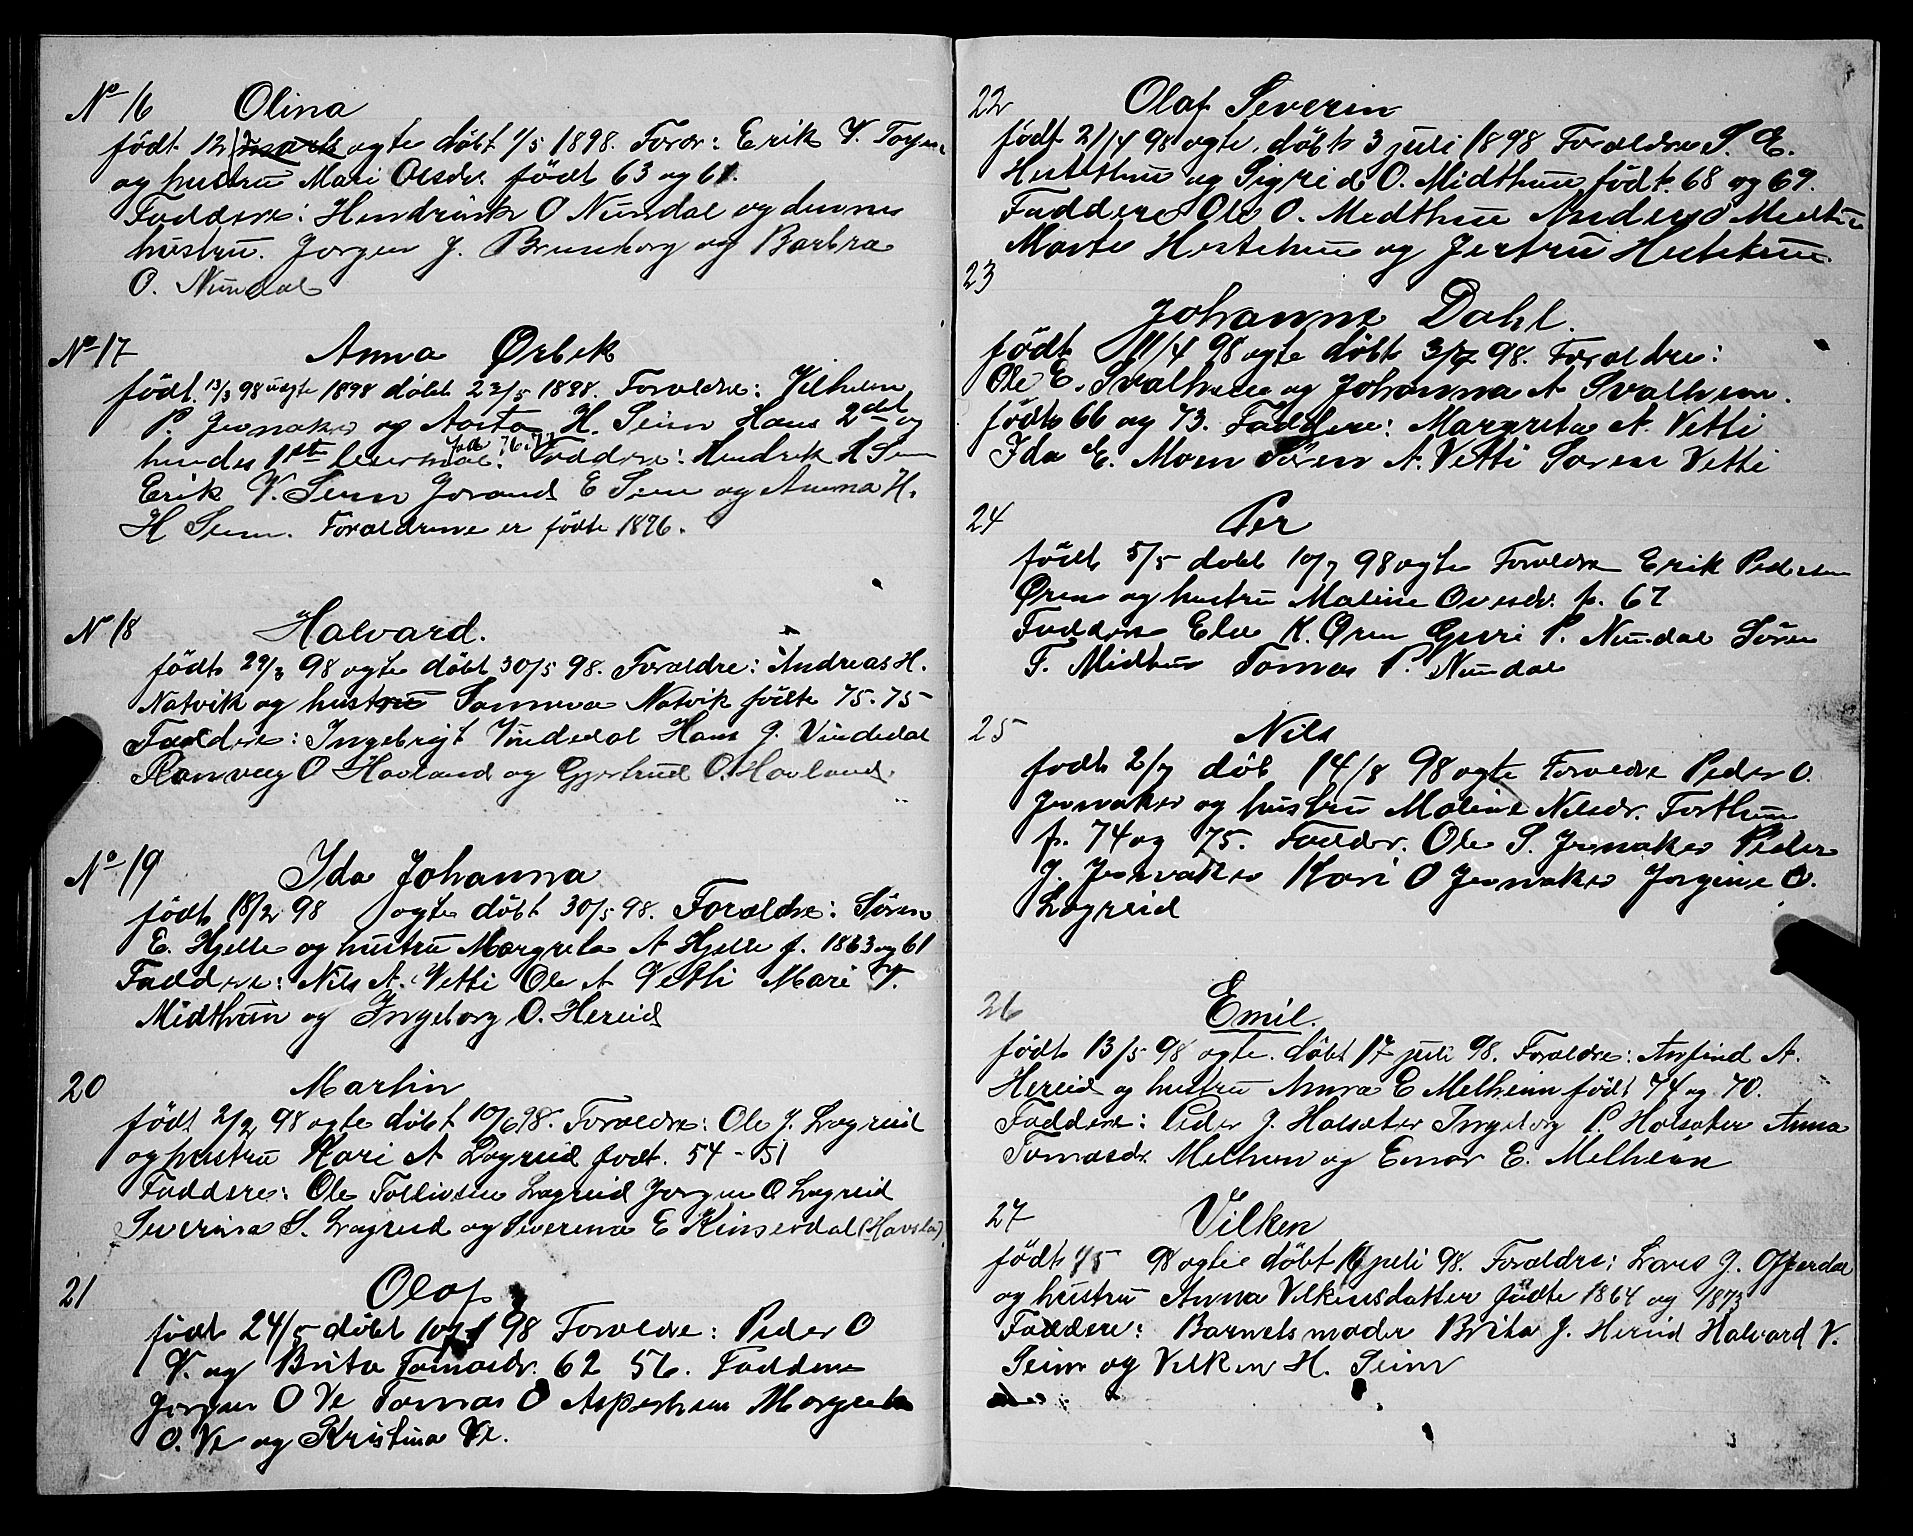 No 16 Olina
født 12/ ægte døbt 1/5 1898. Foror: Erik V.
og hustru Mari Olsdr. født 63 og 61.
Faddere: Hendrik O Nundal og dennes
hustru. Jorgen J. Bruneborg og Barbra
O. Nundal
No 17 Anna Ørbek
født 13/3 98 uægte 1898 døbt 23/5 1898. Forældre: Vilhelm
P. Jevnaker og Aasta H. Seim Hans 2det og
hendes 1ste leiermal. Faddere: Hendrik H Seim
Erik V. Seim Jorand E Seim og Anna H.
H Seim. Forældrene er fødte 1876.
No 18 Halvard.
født 29/3 98 ægte døbt 30/5 98. Forældre: Andreas H.
Natvik og hustru Sanneva Natvik fødte 75. 75
Faddere: Ingebrigt Vindedal Hans J. Vindedal
Ranveig O Hovland og Gjertrud O. Hovland.
No 19 Ida Johanna
født 18/2 98 ægte døbt 30/5 98. Forældre: Søren
E. Hjelle og hustru Margreta A Hjelle f. 1863 og 61
Faddere: Nils A. Vetti Ole A Vetti Mari V.
Midthun og Ingeborg O. Hereid
20 Martin
født 2/2 98 ægte døbt 10/6 98. Forældre: Ole J. Lægreid
og hustru Kari A Lægreid født. 54 - 51
Faddere: Ole Tollivsen Lægreid Jorgen O Lægreid
Severina S. Lægreid og Severina E Kinserdal (Havsla).
21 Olaf
født 24/5 døbt 98 Forældre: Peder O
V. og Brita Tomasdr. 62 56. Faddere
Jorgen O Ve Tomas O Asperheim Margreta
O. Ve og Kristina Ve.
22 Olaf Severin
født 21/4 98 ægte. døbt 3 juli 1898 Forældre S. E.
Hestethun og Sigrid O. Midthun født. 68 og 69.
Faddere Ole O. Midthun Anders Midthun
Marte Hestethun og Jertru Hestethun.
23
Johanne Dahl.
født 11/4 98 ægte døbt 3/7 98. Forældre:
Ole E. Svalheim og Johanna A Svalheim.
født 66 og 73. Faddere: Margreta A. Vetti
Ida E. Moen Søren A. Vetti Soren Vetti
24 Per
født 5/5 døbt 10/7 98 ægte Forældre Erik Pedersen
Øren og hustru Maline Ovesdr. f. 67
Faddere Elen K. Øren Guri P. Nundal Søren
T. Midthun Tomas P. Nundal
25 Nils
født 2/7 døbt 14/8 98 ægte Forældre Peder O.
Jevnaker og hustru Maline Nilsdr. Forthun
f. 74 og 75. Faddr. Ole S. Jevnaker Peder
J. Jevnaker Kari O Jevnaker Jorgine O.
Lægreid
26 Emil.
født 13/5 98 ægte. døbt 17 juli 98. Forældre: Anfind A.
Hereid og hustru Anna E Melheim født 74 og 70.
Faddere: Peder J. Holsæter Ingeborg P. Holsæter Anna
Tomasdr. Melheim og Emor E. Melheim
27 Vilken
født 4/5 98 ægte døbt 16 juli 98. Forældre: Lars J. Offerdal
og hustru Anna Vilkensdatter fødte 1864 og 1873
Faddere: Barnets moder Brita J. Hereid Halvard V.
Seim og Vilken H. Seim